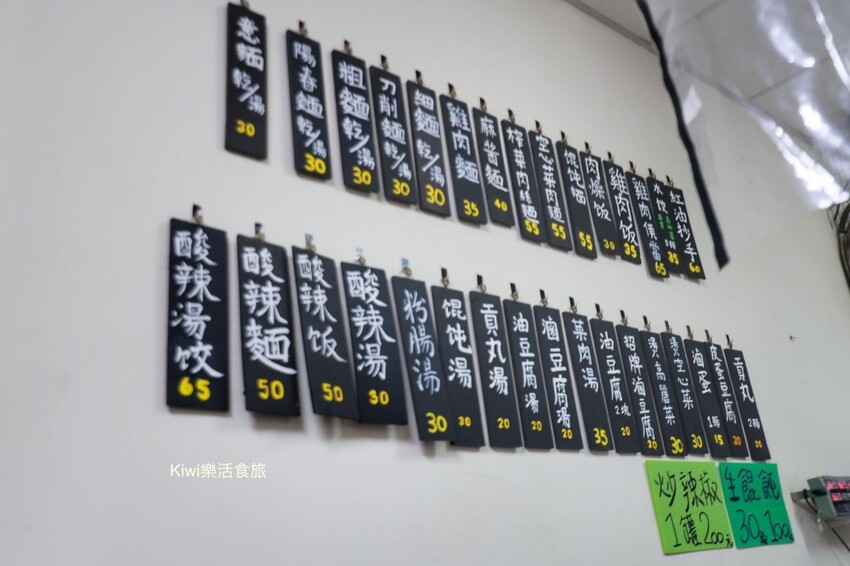 意麵 乾/湯 30
陽春麵 乾/湯 30
粗麵 乾/湯 30
刀削麵 乾/湯 30
細麵 乾/湯 30
雞肉麵 35
麻醬麵 40
榨菜肉絲麵 55
空心菜肉麵 55
馄饨麵 55
肉燥饭 30
雞肉饭 35
雞肉便當 65
水饺 35
紅油抄手 60
酸辣湯饺 65
酸辣麵 50
酸辣饭 50
酸辣湯 30
粉腸湯 30
馄饨湯 30
貢丸湯 20
油豆腐湯 20
滷豆腐湯 20
菜肉湯 35
油豆腐 2塊 20
招牌滷豆腐 20
燙高麗菜 30
燙空心菜 30
滷蛋 1顆 15
皮蛋豆腐 30
貢丸 2顆 20
炒辣椒
1罐200元
生餛飩
30 100
Kiwi樂活食旅